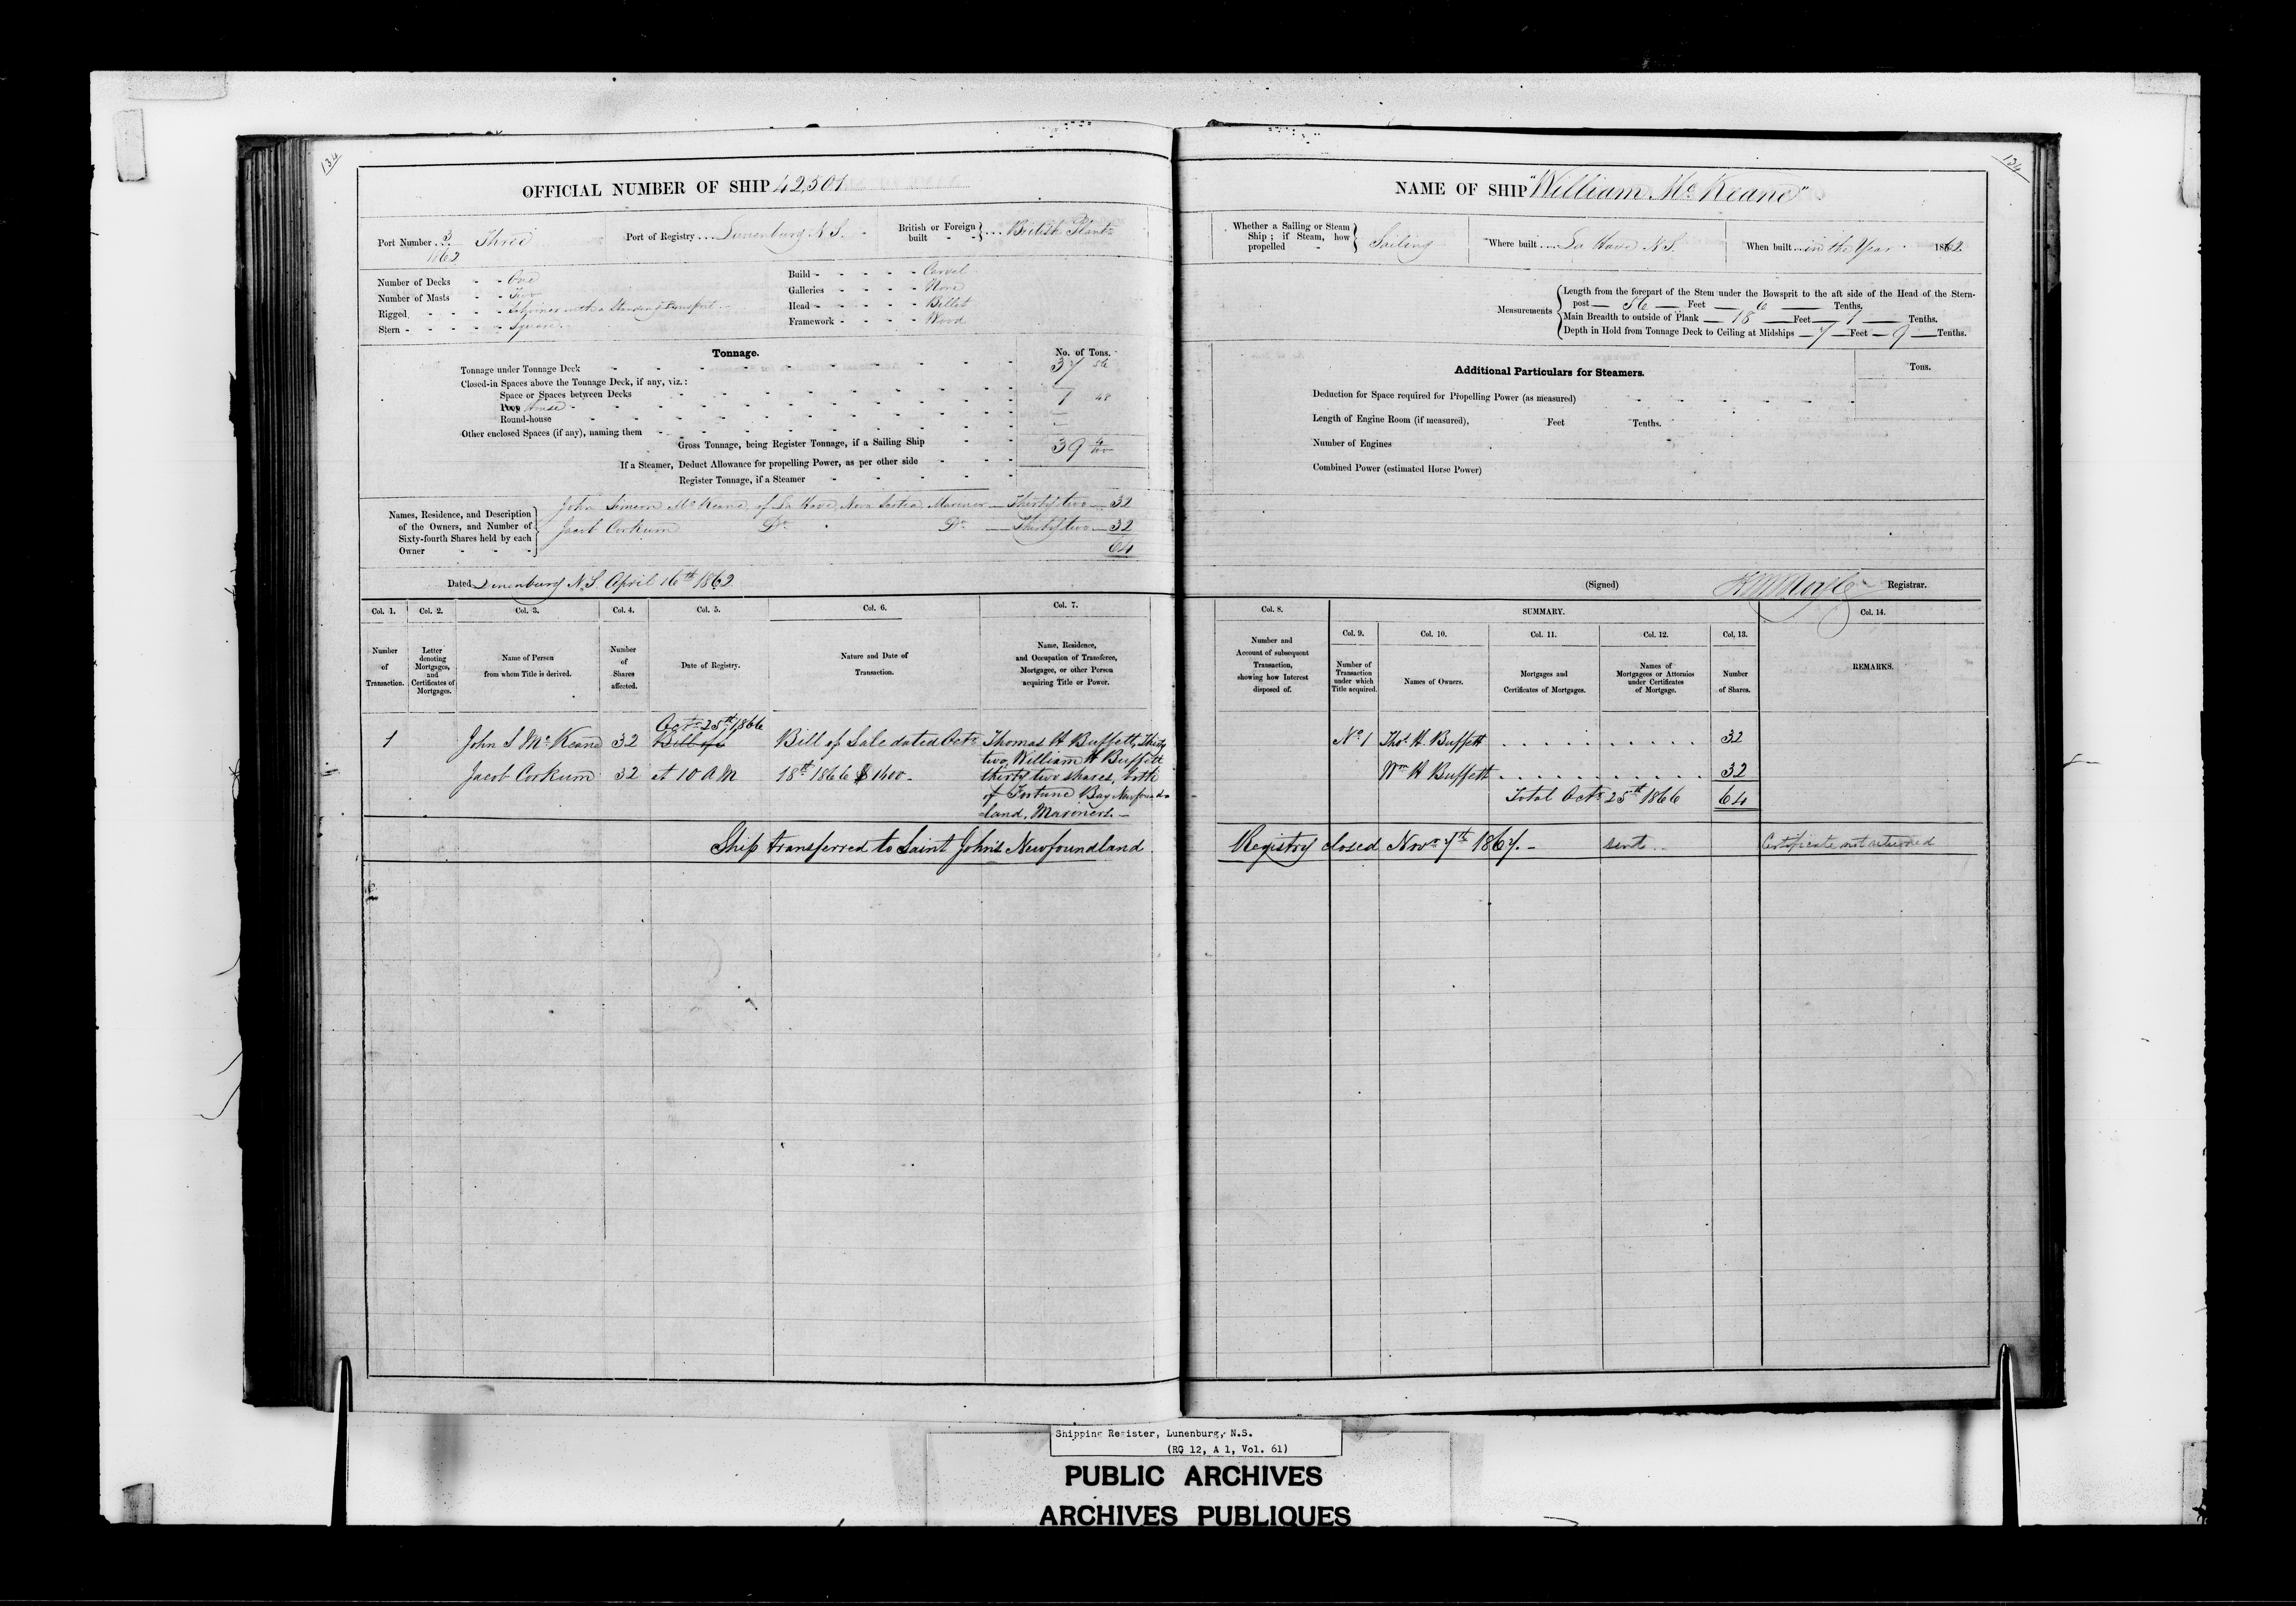 134
OFFICIAL NUMBER OF SHIP 42,501
Port Number 3/1862 Three
Port of Registry Lunenburg N S.
British or Foreign built British Plant
Number of Decks One
Number of Masts Two
Rigged Schooner with a Standing Bowsprit
Stern Square
Build Carvel
Galleries None
Head Billet
Framework Wood
Tonnage. No. of Tons.
Tonnage under Tonnage Deck 37 56
Closed-in Spaces above the Tonnage Deck, if any, viz.:
Space or Spaces between Decks
Poop House 1 48
Round-house
Other enclosed Spaces (if any), naming them
Gross Tonnage, being Register Tonnage, if a Sailing Ship 39 4/100
If a Steamer, Deduct Allowance for propelling Power, as per other side
Register Tonnage, if a Steamer
Names, Residence, and Description of the Owners, and Number of Sixty-fourth Shares held by each Owner
John Simeon McKeane of La Have, Nova Scotia Mariner Thirty two 32
Jacob Corkum Do Do Thirty two 32
64
Dated Lunenburg N.S. April 16th 1862
Col. 1. Col. 2. Col. 3. Col. 4. Col. 5. Col. 6. Col. 7.
Number of Transaction.
Letter denoting Mortgages, and Certificates of Mortgages.
Name of Person from whom Title is derived.
Number of Shares affected.
Date of Registry.
Nature and Date of Transaction.
Name, Residence, and Occupation of Transferee, Mortgagee, or other Person acquiring Title or Power.
Octr 25th 1866
1 John S McKeane 32 Bill of Bill of Sale dated Octr Thomas H Buffett, Thirty
two, William H Buffett
Jacob Corkum 32 at 10 A M 18th 1866 $ 1600. thirty two shares, both
of Fortune Bay Newfound-
land, Mariners.
Ship transferred to Saint John's Newfoundland
134
NAME OF SHIP "William McKeane"
Whether a Sailing or Steam Ship; if Steam, how propelled Sailing
Where built La Have N.S.
When built in the Year 1862.
Measurements
Length from the forepart of the Stem under the Bowsprit to the aft side of the Head of the Stern-
post 56 Feet 6 Tenths.
Main Breadth to outside of Plank 18 Feet 1 Tenths.
Depth in Hold from Tonnage Deck to Ceiling at Midships 7 Feet 9 Tenths.
Additional Particulars for Steamers. Tons.
Deduction for Space required for Propelling Power (as measured)
Length of Engine Room (if measured), Feet Tenths.
Number of Engines
Combined Power (estimated Horse Power)
(Signed) Registrar.
Col. 8. SUMMARY. Col. 14.
Col. 9. Col. 10. Col. 11. Col. 12. Col. 13.
Number and Account of subsequent Transaction, showing how Interest disposed of.
Number of Transaction under which Title acquired.
Names of Owners.
Mortgages and Certificates of Mortgages.
Names of Mortgagees or Attornies under Certificates of Mortgage.
Number of Shares.
REMARKS.
No 1 Thos H. Buffett 32
Wm H Buffett 32
Total Octr 25th 1866 64
Registry closed Novr 7th 1867. sent Certificate not returned
Shipping Register, Lunenburg, N.S.
(RG 12, A 1, Vol. 61)
PUBLIC ARCHIVES
ARCHIVES PUBLIQUES